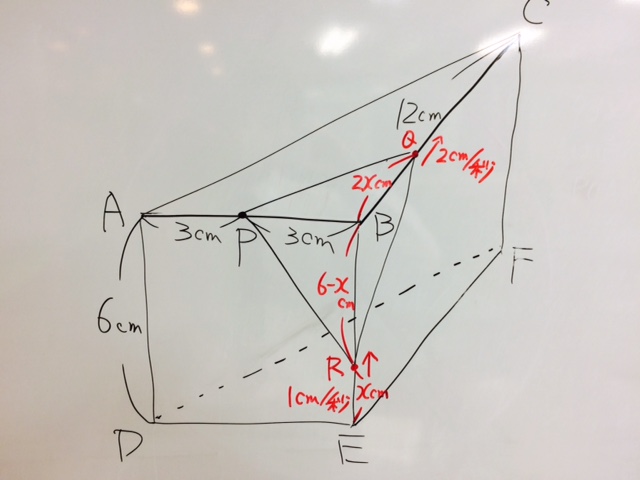 C
12cm
Q
2cm/秒
2xcm
A
3cm
P
3cm
B
6-x
cm
F
6cm
R
1cm/秒
xcm
D
E